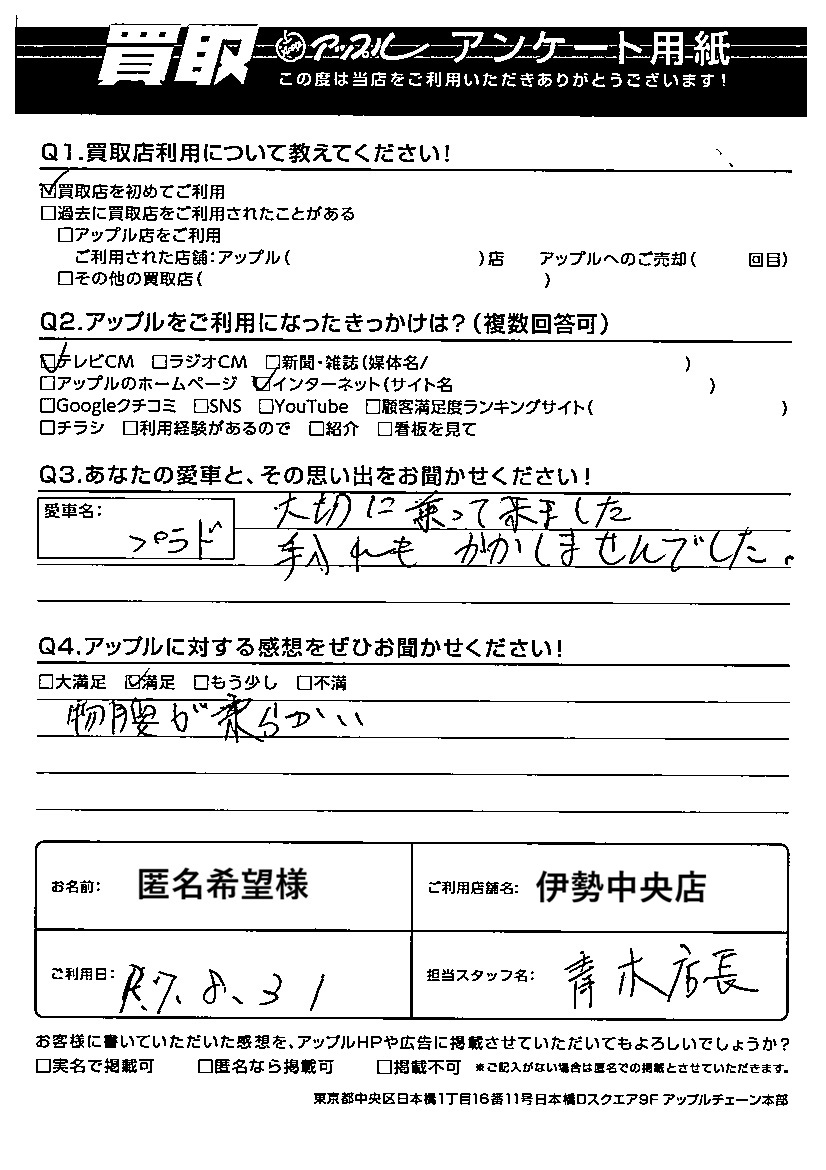 買取 Apple アップル アンケート用紙
この度は当店をご利用いただきありがとうございます!
Q1.買取店利用について教えてください!
☑買取店を初めてご利用
□過去に買取店をご利用されたことがある
□アップル店をご利用
ご利用された店舗:アップル( )店 アップルへのご売却( 回目)
□その他の買取店( )
Q2.アップルをご利用になったきっかけは?(複数回答可)
☑テレビCM □ラジオCM □新聞・雑誌(媒体名/ )
□アップルのホームページ ☑インターネット(サイト名 )
□Googleクチコミ □SNS □YouTube □顧客満足度ランキングサイト( )
□チラシ □利用経験があるので □紹介 □看板を見て
Q3.あなたの愛車と、その思い出をお聞かせください!
愛車名: プラド
大切に乗って来ました
手入れもかかしませんでした。
Q4.アップルに対する感想をぜひお聞かせください!
□大満足 ☑満足 □もう少し □不満
物腰が柔らかい
お名前: 匿名希望様 ご利用店舗名: 伊勢中央店
ご利用日: R.7.8.31 担当スタッフ名: 青木店長
お客様に書いていただいた感想を、アップルHPや広告に掲載させていただいてもよろしいでしょうか?
□実名で掲載可 □匿名なら掲載可 □掲載不可 *ご記入がない場合は匿名での掲載とさせていただきます。
東京都中央区日本橋1丁目16番11号日本橋Dスクエア9F アップルチェーン本部